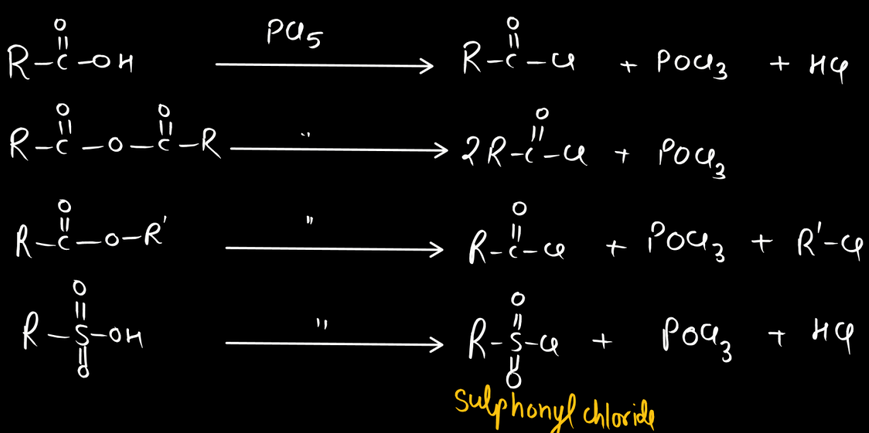 R-C(=O)-OH PCl5 → R-C(=O)-Cl + POCl3 + HCl
R-C(=O)-O-C(=O)-R " → 2R-C(=O)-Cl + POCl3
R-C(=O)-O-R' " → R-C(=O)-Cl + POCl3 + R'-Cl
R-S(=O)(=O)-OH " → R-S(=O)(=O)-Cl + POCl3 + HCl
Sulphonyl chloride